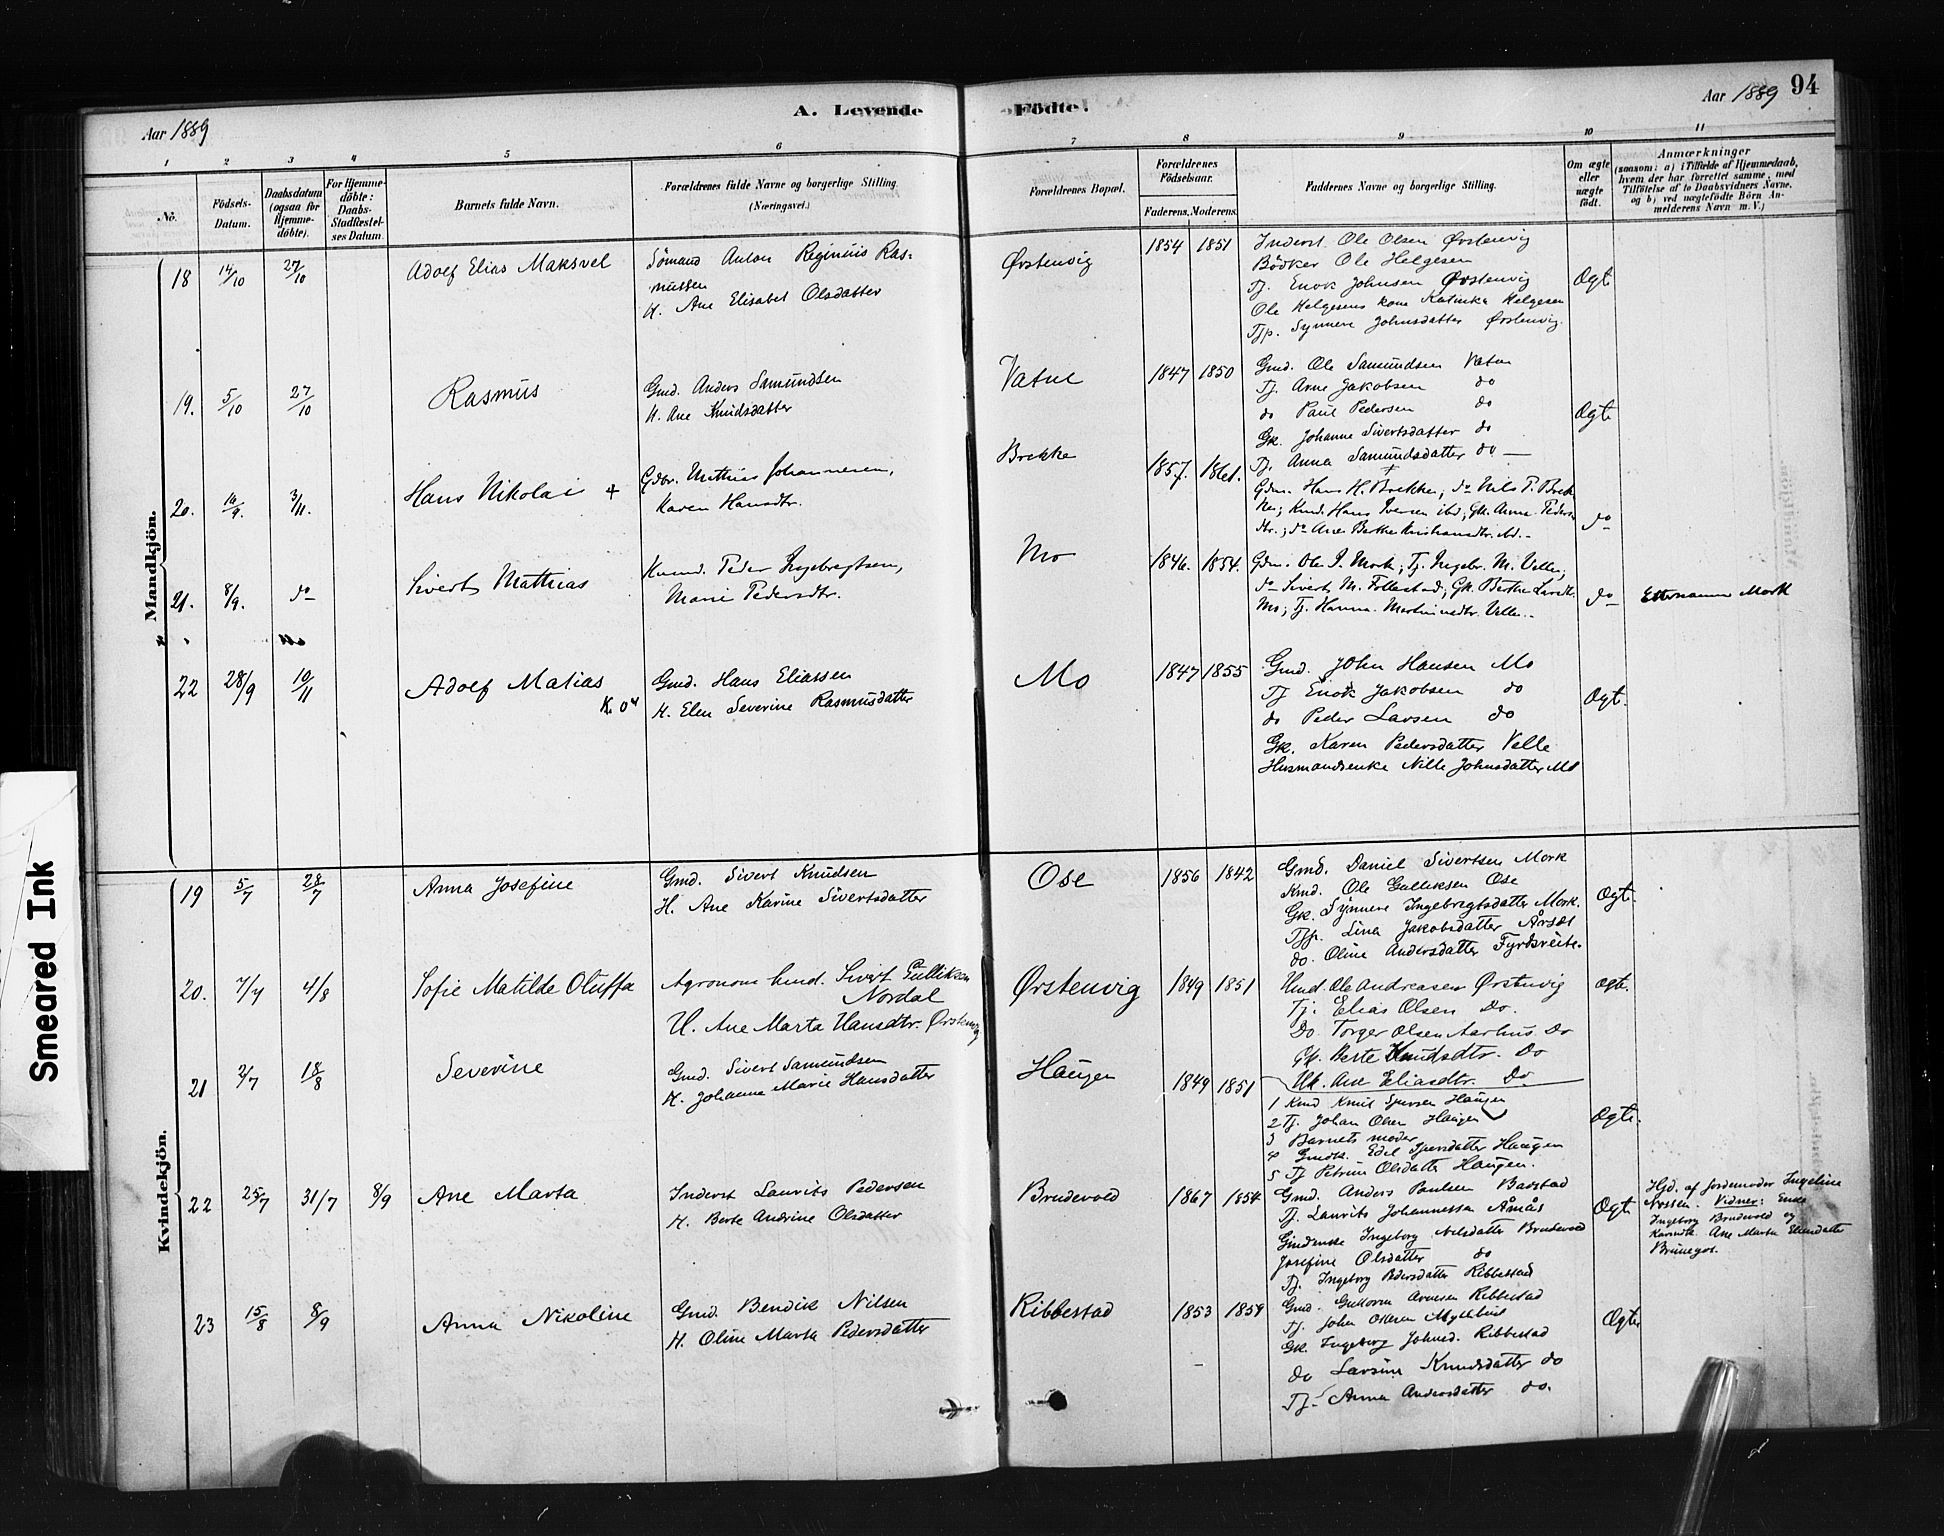 Aar 1889
A. Levende
Födte.
Aar 1889
94
1
2
3
4
5
6
7
8
9
10
11
No.
Födsels-
Datum.
Daabsdatum
(ogsaa for
Hjemme-
döbte).
For Hjemme-
döbte:
Daabs-
Stadfæstel-
ses Datum.
Barnets fulde Navn.
Forældrenes fulde Navne og borgerlige Stilling.
(Næringsvei.)
Forældrenes Bopæl.
Forældrenes
Födselsaar.
Faderens.
Moderens.
Faddernes Navne og borgerlige Stilling.
Om ægte
eller
uægte
födt.
Anmærkninger
(saasom: a) i Tilfælde af Hjemmedaab,
hvem der har forrettet samme, med
Tilföielse af to Daabsvidners Navne,
og b) ved uægtefödte Börn An-
melderens Navn m. V.)
Mandkjön.
18
14/10
27/10
Adolf Elias Maksvel
Sömand Anton Reginius Ras-
mussen
H. Ane Elisabet Olsdatter
Ørstenvig
1854
1851
Inderst Ole Olsen Ørstenvig
Bödker Ole Helgesen
Tj. Enok Johnsen Ørstenvig
Ole Helgesens kone Katinka Helgesen
Tjp. Synnere Johnsdatter Ørstenvig
Ægt
19.
5/10
27/10
Rasmus
Gmd. Anders Samundsen
H. Ane Knudsdatter
Vatne
1847
1850
Gmd. Ole Samundsen Vatne
Tj. Arne Jakobsen do
do Paul Pedersen do
Gk. Johanne Sivertsdatter do
Tj. Anna Samundsdatter do
Ægte
20.
3/11.
Hans Nikolai +
Gdbr. Mathias Johannesen,
Karen Hansdtr.
Brekke
1857.
1861.
Gdm. Hans H. Brekke; do Nils P. Brek-
ke; Kmd. Hans Iversen ibd; Gk. Anne Peders-
dtr.; do Ane Berthe Kristiansdtr. ibd.
do
21.
8/9.
do
Sivert Mathias
Kmd. Peder Ingebregtsen,
Marie Pedersdtr.
Mo
1846.
1854.
Gdm. Ole P. Mork; Tj. Ingebr. M. Velle;
do Sivert M. Follestad; Gk. Berthe Larsdtr.
Mo; Tj. Hanna Martinusdtr. Velle.
do
Efternavn Mork
22
28/9
10/11
Adolf Matias
Gmd. Hans Eliassen
H. Elen Severine Rasmusdatter
Mo
1847
1855
Gmd. John Hansen Mo
Tj Enok Jakobsen do
do Peder Larsen do
Gk. Karen Pedersdatter Velle
Husmandsenke Nille Johnsdatter Mo
Ægt.
Kvindekjön.
19
5/7
28/7
Anna Josefine
Gmd. Sivert Knudsen
H. Ane Karine Sivertsdatter
Ose
1856
1842
Gmd. Daniel Sivertsen Mork
Kmd. Ole Gulliksen Ose
Gk. Synnere Ingebregtsdatter Mork.
Tjp. Lina Jakobsdatter Årset
do. Oline Andersdatter
Ægte.
20.
7/7
4/8
Sofie Matilde Oluffa
Agronom Sivert Gulliksen
Nordal
H. Ane Marta Hansdtr. Ørstenvig
Ørstenvig
1849
1851
Ole Andreasen Ørstenvig
Tj. Elias Olsen Do.
Do. Torger Olsen Aarhus Do
Gk. Berte Knudsdtr. Do
Ane Eliasdtr. Do
Ægt.
21
2/7
18/8
Severine
Gmd. Sivert Samundsen
H. Johanne Marie Hansdatter
Haugen
1849
1851
1 Kmd Knut Iversen Haugen
2 Tj. Johan Olsen Haugen
3 Barnets moder
4 Gmdk. Edel Iversdatter Haugen
5 Tj Petrine Olsdatter Haugen.
Ægte.
22
25/7
31/7
8/9
Ane Marta
Inderst Laurits Pedersen
H. Berte Andrine Olsdatter
Brudevold
1867
1854
Gmd. Anders Paulsen Barstad
Tj. Laurits Johannessen Åmås
Gmdenke Ingeborg Nilsdatter Brudevold
Josefine Olsdatter do
Tj. Ingeborg Pedersdatter Ribbestad
Ægt
Hjd. af Jordemoder Ingeline
Nossen. Vidner: Enke
Ingeborg Brudevold og
Ane Marta
23
15/8
8/9
Anna Nikoline
Gmd. Bendik Nilsen
H. Oline Marta Pedersdatter
Ribbestad
1853
1859
Gmd. Guttorm Arnesen Ribbestad
Tj. John Olsen Myklebust
Gk. Ingeborg Johnsd. Ribbestad
do Larsine Knudsdatter do
Tj. Anna Andersdatter do.
Ægte
Smeared Ink